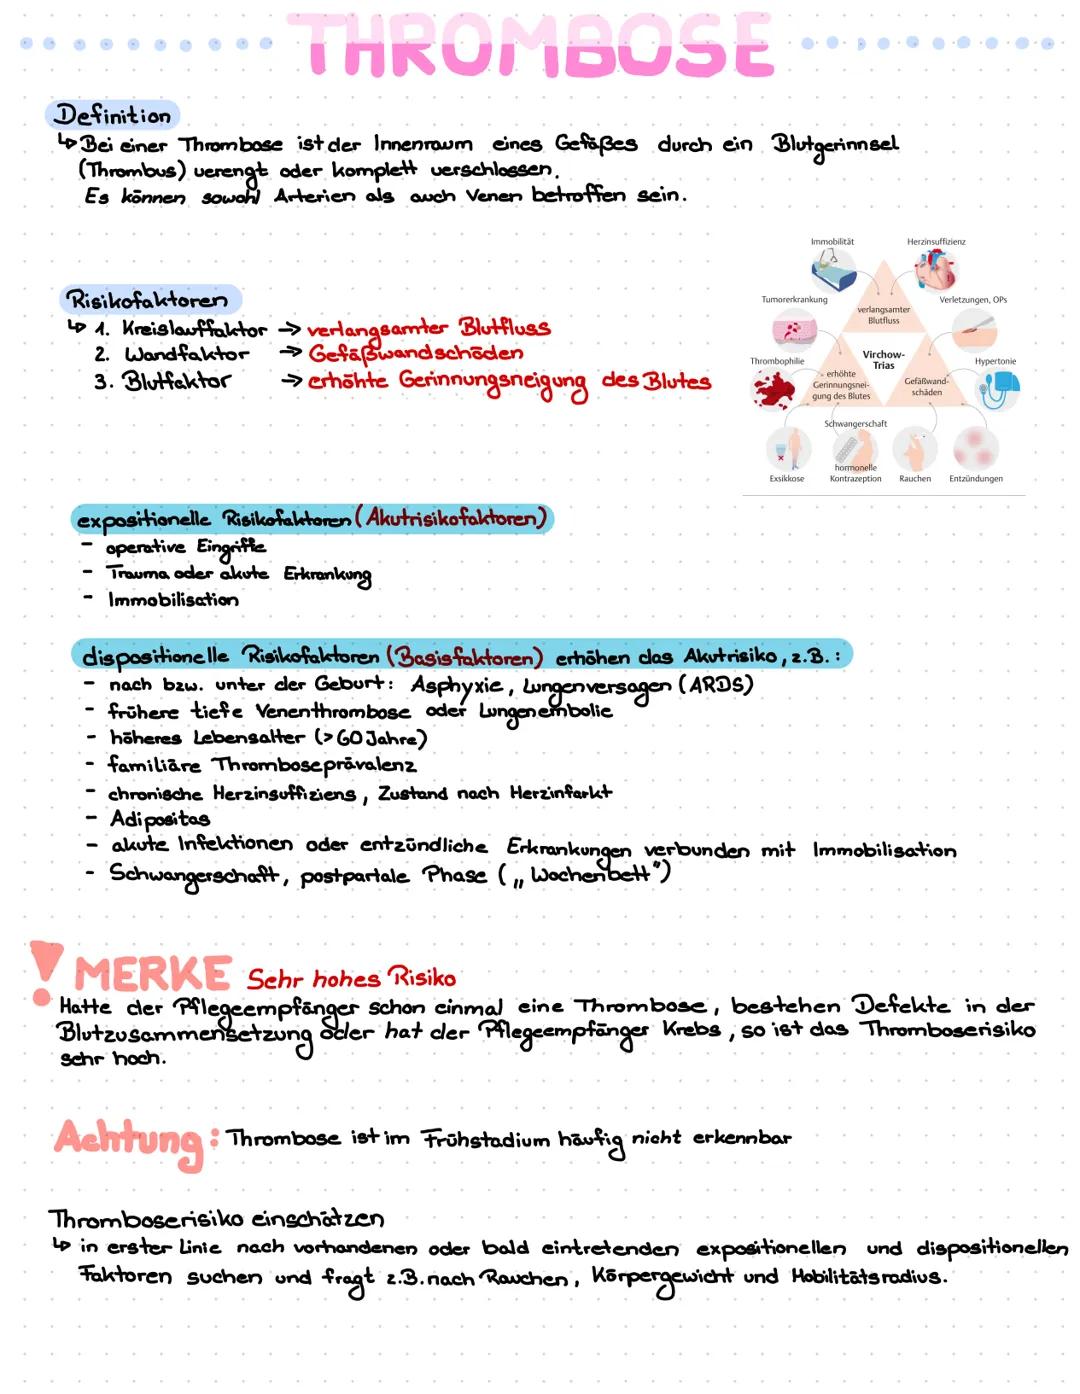 THROMBOSE
Definition
↳ Bei einer Thrombose ist der Innenraum eines Gefäßes durch ein Blutgerinnsel
(Thrombus) verengt oder komplett verschlossen.
Es können sowohl Arterien als auch Venen betroffen sein.
Risikofaktoren
↳ 1. Kreislauffaktor → verlangsamter Blutfluss
2. Wandfaktor → Gefäßwandschäden
3. Blutfaktor → erhöhte Gerinnungsneigung des Blutes
Immobilität Herzinsuffizienz
Tumorerkrankung Verletzungen, OPs
verlangsamter
Blutfluss
Virchow-
Trias
Thrombophilie Hypertonie
erhöhte
Gerinnungsnei-
gung des Blutes
Gefäßwand-
schäden
Schwangerschaft
hormonelle
Exsikkose Kontrazeption Rauchen Entzündungen
expositionelle Risikofaktoren (Akutrisikofaktoren)
- operative Eingriffe
- Trauma oder akute Erkrankung
- Immobilisation
dispositionelle Risikofaktoren (Basisfaktoren) erhöhen das Akutrisiko, z.B. :
- nach bzw. unter der Geburt: Asphyxie, Lungenversagen (ARDS)
- frühere tiefe Venenthrombose oder Lungenembolie
- höheres Lebensalter (> 60 Jahre)
- familiäre Thromboseprävalenz
- chronische Herzinsuffiziens, Zustand nach Herzinfarkt
- Adipositas
- akute Infektionen oder entzündliche Erkrankungen verbunden mit Immobilisation
- Schwangerschaft, postpartale Phase („Wochenbett")
! MERKE Sehr hohes Risiko
Hatte der Pflegeempfänger schon einmal eine Thrombose, bestehen Defekte in der
Blutzusammensetzung oder hat der Pflegeempfänger Krebs, so ist das Thromboserisiko
sehr hoch.
Achtung: Thrombose ist im Frühstadium häufig nicht erkennbar
Thromboserisiko einschätzen
↳ in erster Linie nach vorhandenen oder bald eintretenden expositionellen und dispositionellen
Faktoren suchen und fragt z.B. nach Rauchen, Körpergewicht und Mobilitätsradius.